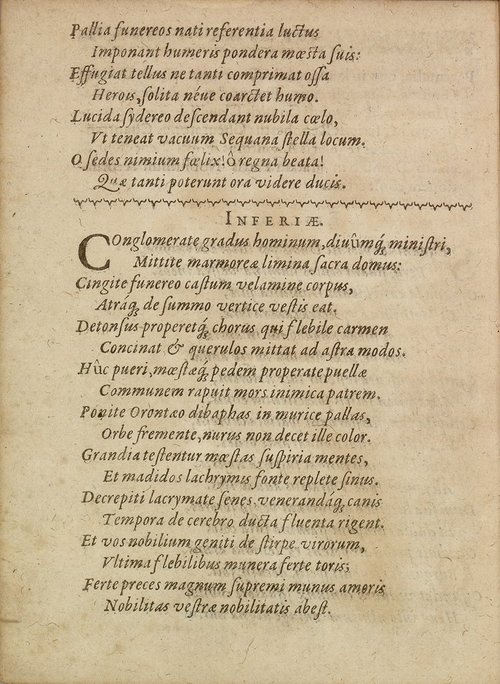 Pallia funereos nati referentia luctus
Imponant humeris pondera mœsta suis:
Effugiat tellus ne tanti comprimat ossa
Herois, solita néue coarctet humo.
Lucida sydereo descendant nubila cœlo,
Vt teneat vacuum Sequana stella locum.
O sedes nimium fœlix! ô regna beata!
Quæ tanti poterunt ora videre ducis.
INFERIÆ.
COnglomerate gradus hominum, diuûmq́; ministri,
Mittite marmoreæ limina sacra domus:
Cingite funereo castum velamine corpus,
Atraq́; de summo vertice vestis eat.
Detonsus properetq́; chorus qui flebile carmen
Concinat & querulos mittat ad astra modos.
Hûc pueri, mœstæq́; pedem properate puellæ
Communem rapuit mors inimica patrem.
Ponite Orontæo dibaphas in murice pallas,
Orbe fremente, nurus non decet ille color.
Grandia testentur mœstas suspiria mentes,
Et madidos lachrymis fonte replete sinus.
Decrepiti lacrymate senes, venerandáq́; canis
Tempora de cerebro ducta fluenta rigent.
Et vos nobilium geniti de stirpe virorum,
Vltima flebilibus munera ferte toris;
Ferte preces magnum supremi munus amoris
Nobilitas vestræ nobilitatis abest.